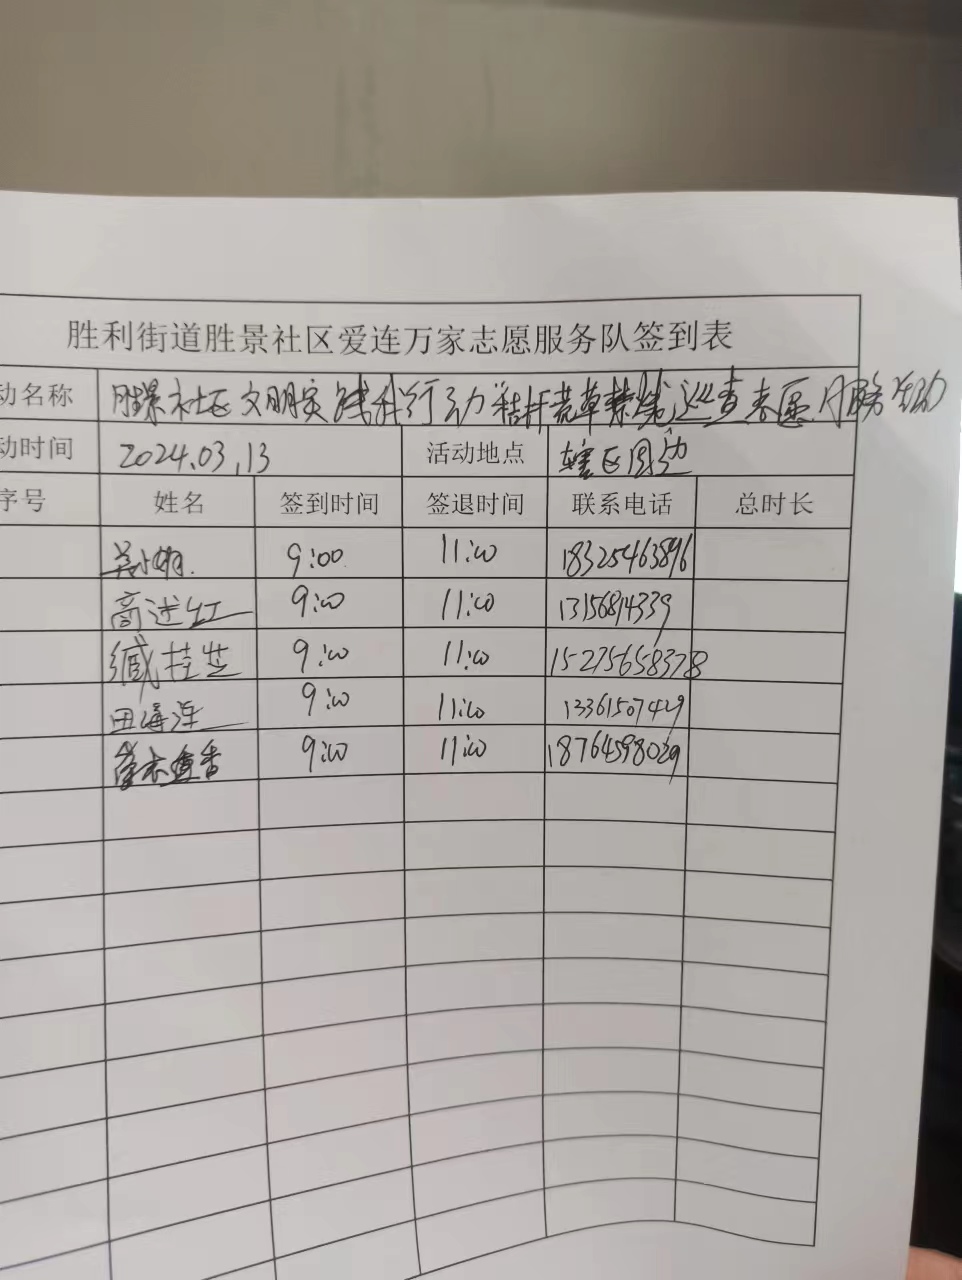 胜利街道胜景社区爱连万家志愿服务队签到表
动名称 胜景社区文明实践我行动“秸秆荒草禁烧”巡查志愿服务活动
动时间 2024.03.13 活动地点 辖区周边
序号 姓名 签到时间 签退时间 联系电话 总时长
9:00 11:00 18325463896
高进红 9:00 11:00 13156814339
臧桂芝 9:00 11:00 15275658378
田海连 9:00 11:00 13361507429
9:00 11:00 18764598039